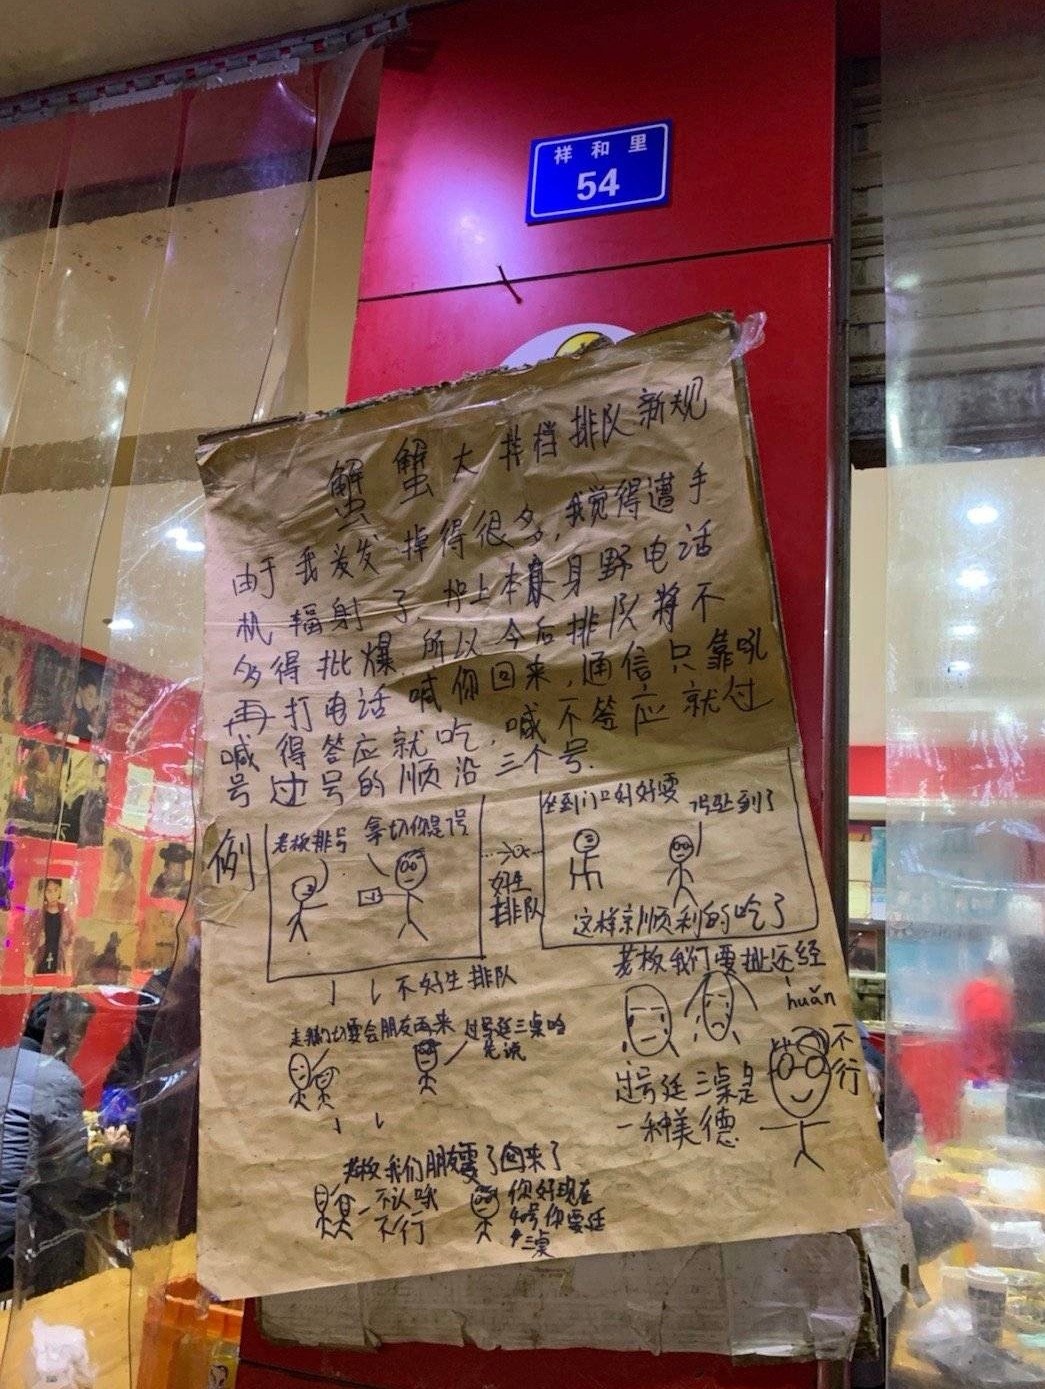 祥和里
54
蟹蟹大排档排队新规
由于我发发掉得很多,我觉得遭手
机辐射了.炉上本身野电话
多得批爆.所以今后排队将不
再打电话喊你回来,通信只靠吼
喊得答应就吃,喊不答应就过
号过号的顺沿三个号.
例
老板排号
拿切你是1号
好生
排队
坐到门口好好耍
1号坐到了
这样就顺利的吃了
不好生排队
过号延三桌哈
先说
老板我们要排还经
huǎn
不
行
过号延三桌是
一种美德
老板我们朋友耍了回来了
不认哦
不行
你好现在
40号你要延
三桌